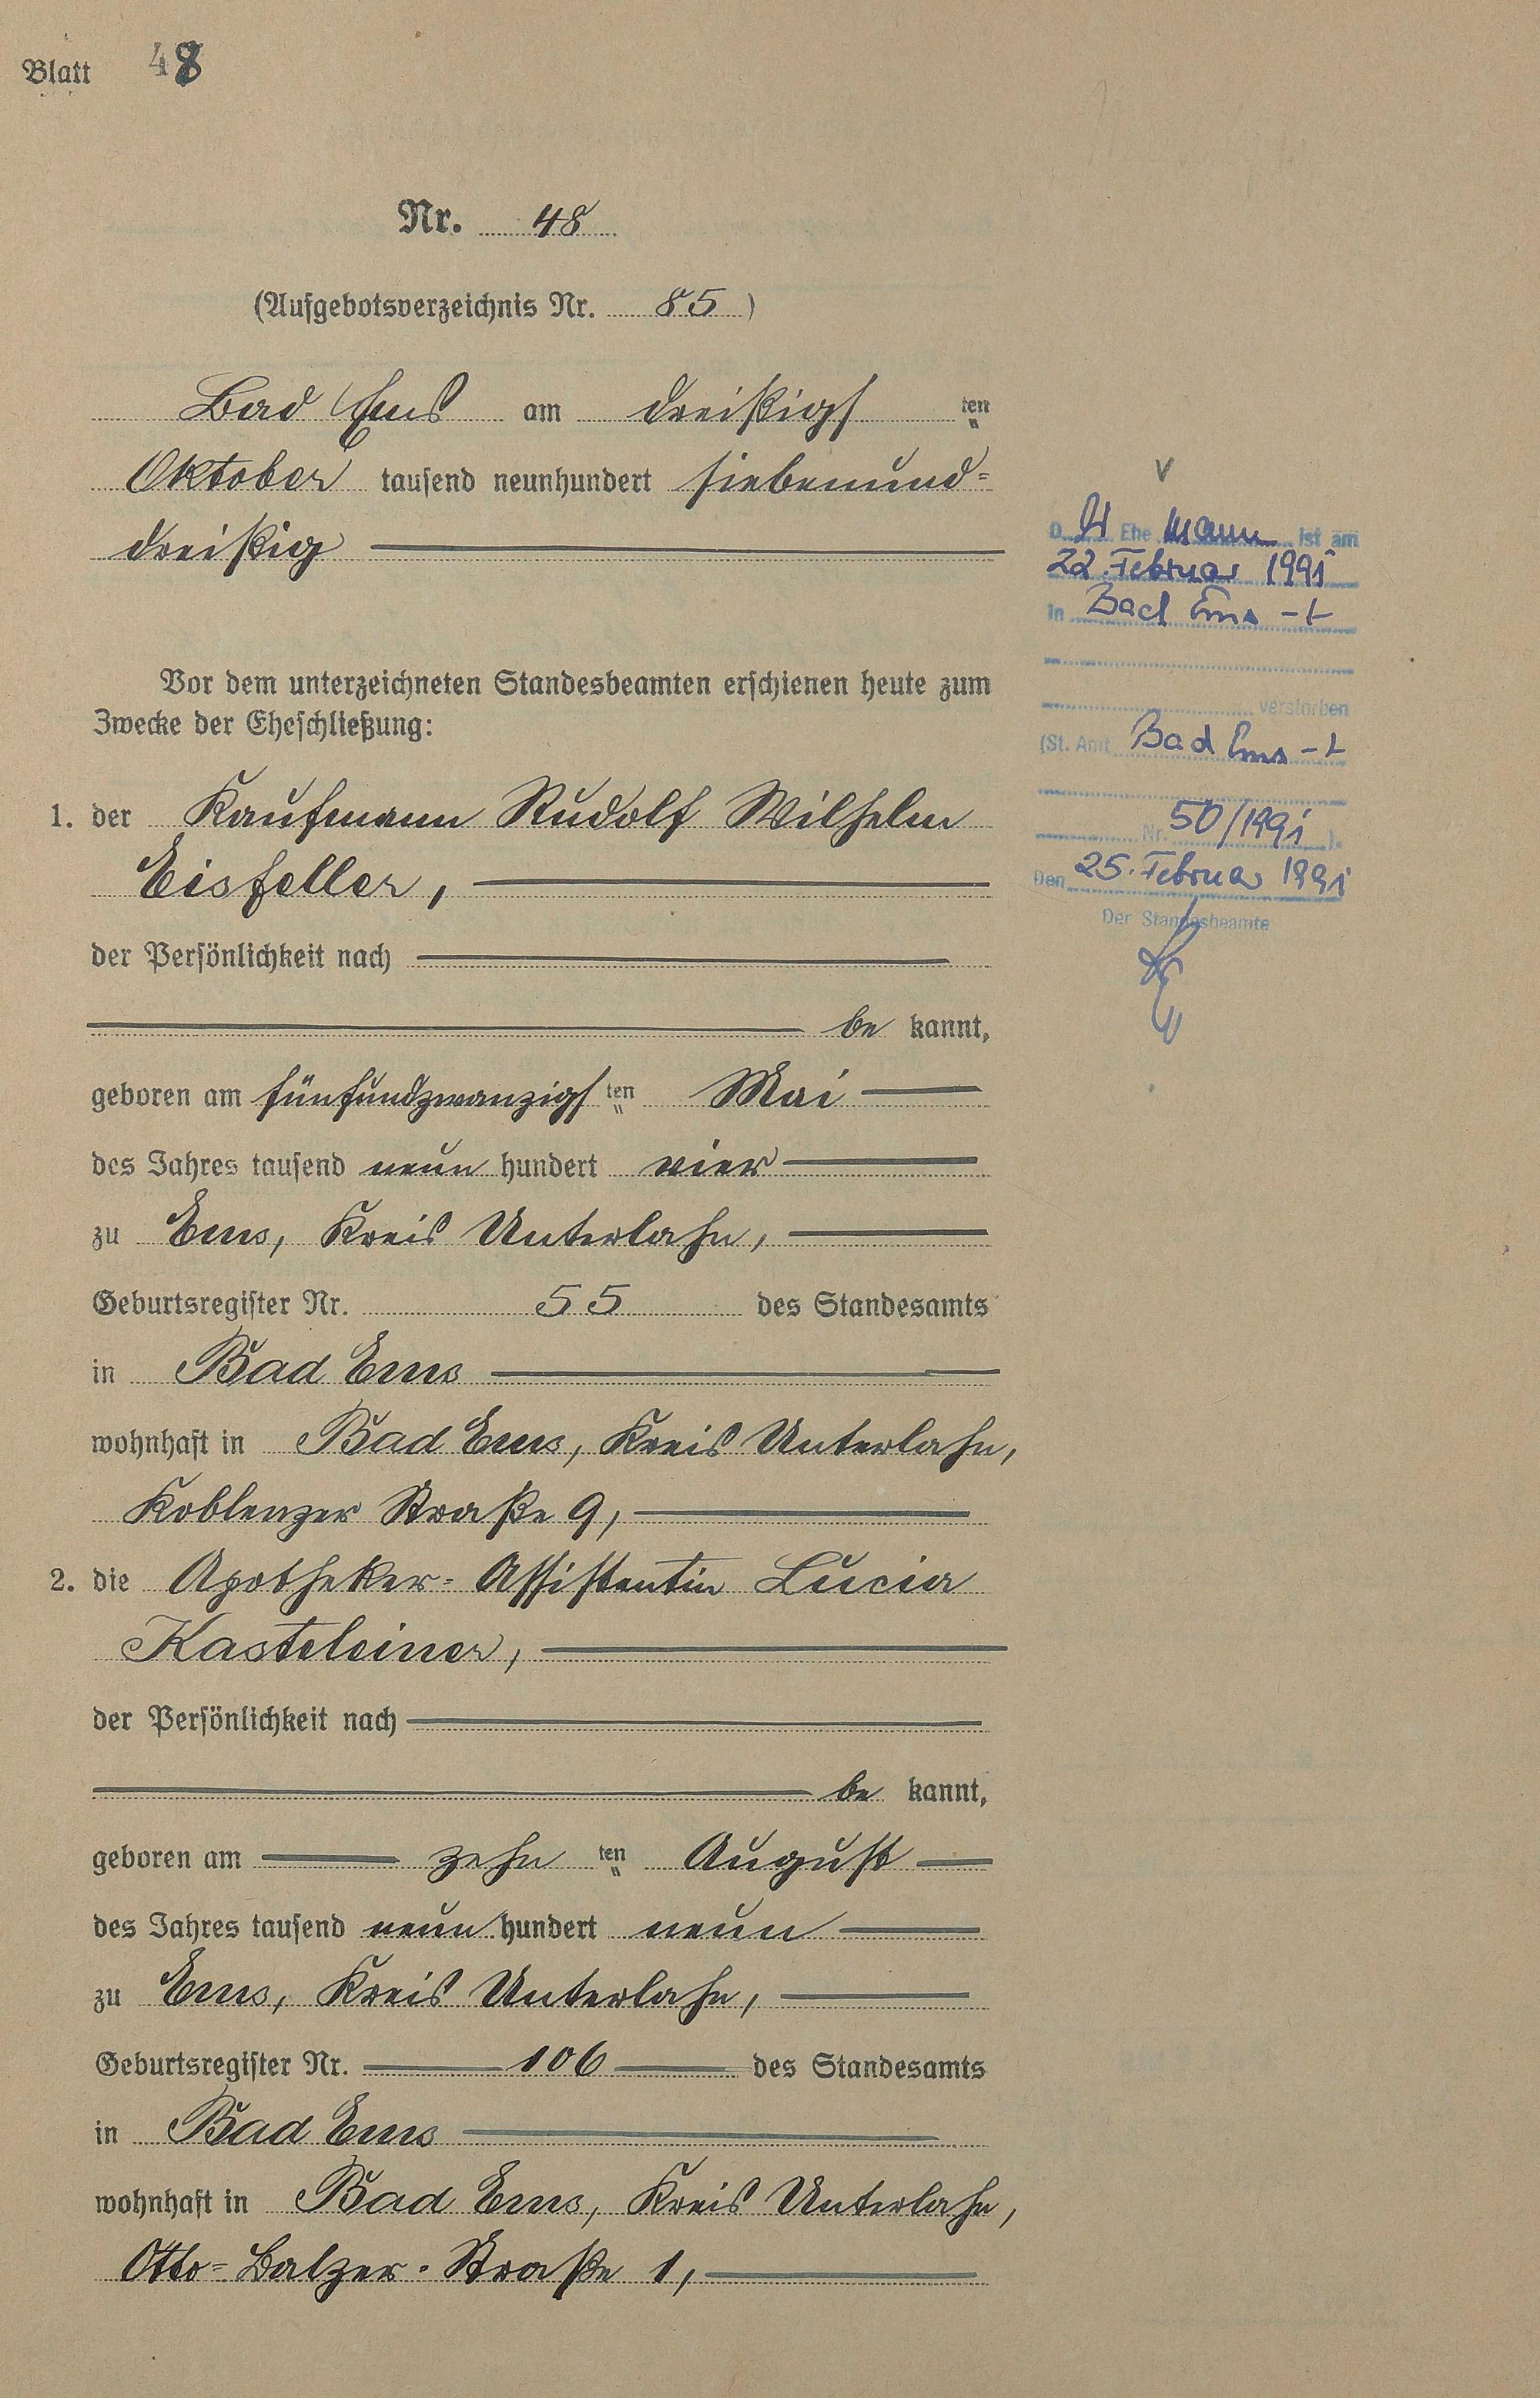 Blatt 48
Nr. 48
(Aufgebotsverzeichnis Nr. 85)
Bad Ems am dreißigsten
Oktober tausend neunhundert siebenund=
dreißig
Vor dem unterzeichneten Standesbeamten erschienen heute zum
Zwecke der Eheschließung:
1. der Kaufmann Rudolf Wilhelm
Eisfeller,
der Persönlichkeit nach
be kannt,
geboren am fünfundzwanzigsten Mai
des Jahres tausend neun hundert vier
zu Ems, Kreis Unterlahn,
Geburtsregister Nr. 55 des Standesamts
in Bad Ems
wohnhaft in Bad Ems, Kreis Unterlahn,
Koblenzer Straße 9,
2. die Apotheker=Assistentin Lucia
Kasteleiner,
der Persönlichkeit nach
be kannt,
geboren am zehn ten August
des Jahres tausend neun hundert neun
zu Ems, Kreis Unterlahn,
Geburtsregister Nr. 106 des Standesamts
in Bad Ems
wohnhaft in Bad Ems, Kreis Unterlahn,
Otto=Balzer-Straße 1,
D er Ehe mann ist am
22. Februar 1991
in Bad Ems
verstorben
(St. Amt Bad Ems
Nr. 50/1991).
Den 25. Februar 1991
Der Standesbeamte